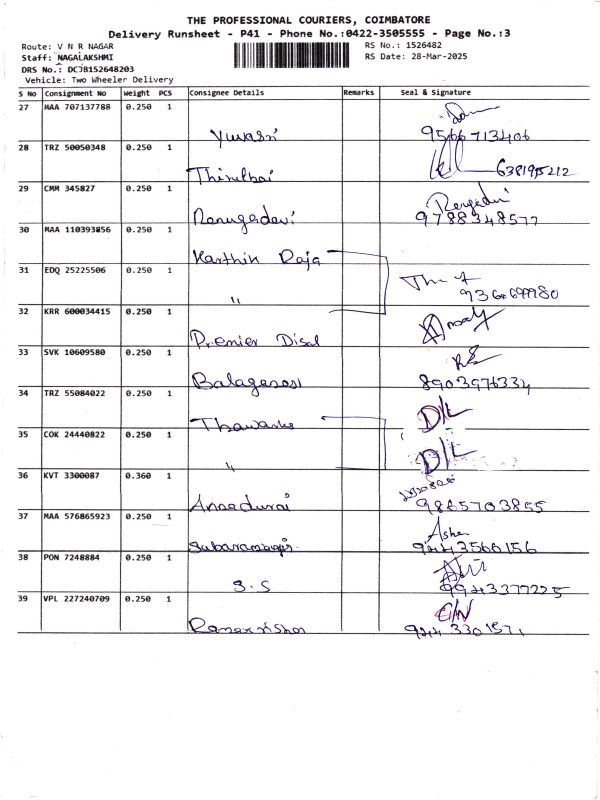 THE PROFESSIONAL COURIERS, COIMBATORE
Delivery Runsheet - P41 - Phone No.:0422-3505555 - Page No.:3
Route: V N R NAGAR
RS No.: 1526482
Staff: NAGALAKSHMI
RS Date: 28-Mar-2025
DRS No.: DCJB152648203
Vehicle: Two Wheeler Delivery
S No Consignment No Weight PCS Consignee Details Remarks Seal & Signature
27 MAA 707137788 0.250 1
Yuvasri 9566713406
28 TRZ 50050348 0.250 1
29 CMM 345827 0.250 1
Renugadevi 9788348577
30 MAA 110393856 0.250 1
Karthik Raja
31 EDQ 25225506 0.250 1
"
32 KRR 600034415 0.250 1
Premier Disal
33 SVK 10609580 0.250 1
8903976334
34 TRZ 55084022 0.250 1
D/L
35 COK 24440822 0.250 1
" D/L
36 KVT 3300087 0.360 1
Annadurai 9865703855
37 MAA 576865923 0.250 1
9443566156
38 PON 7248884 0.250 1
S.S 9943377225
39 VPL 227240709 0.250 1